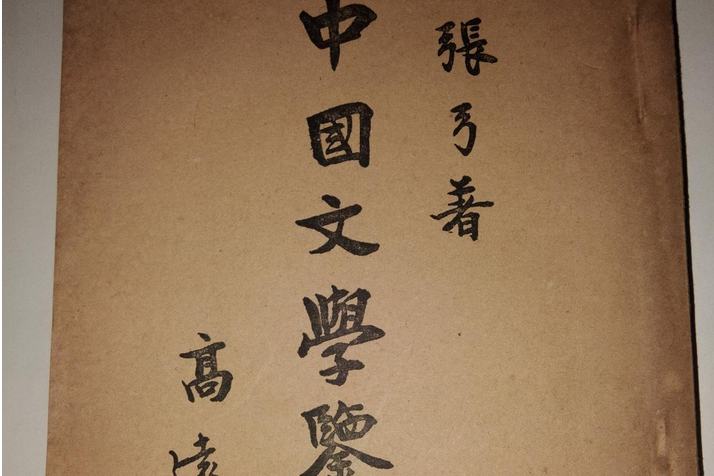 張弓著
中國文學鑒
高遠